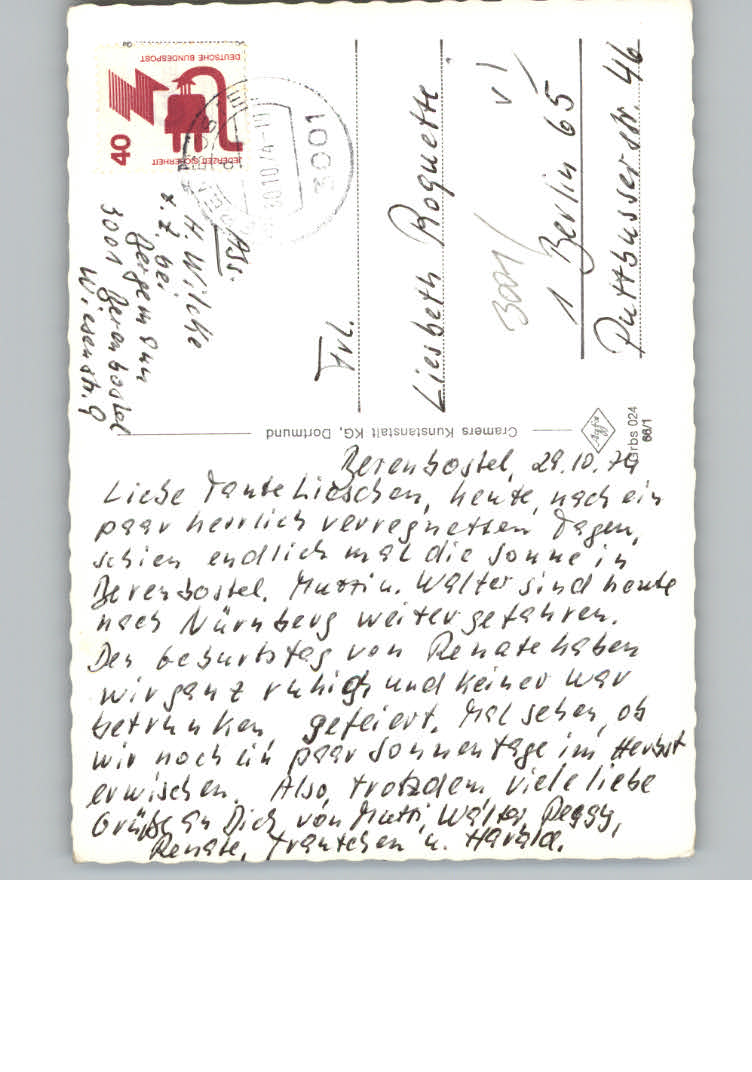 DEUTSCHE BUNDESPOST
JEDERZEIT SICHERHEIT
40
30.10.74
3001
Abs.
H. Wilcke
z. Z. bei
Bergemann
3001 Berenbostel
Wiesenstr. 9
Frl.
Liesbeth Roquette
3001
1 Berlin 65
Puttbusserstr. 46
Cramers Kunstanstalt KG, Dortmund
Agfa
Grbs 024
66/1
Berenbostel, 29.10.74
Liebe Tante Lieschen, heute, nach ein
paar herrlich verregnetsen Tagen,
schien endlich mal die Sonne in
Berenbostel. Mutti u. Walter sind heute
nach Nürnberg weitergefahren.
Den Geburtstag von Renate haben
wir ganz ruhig, und keiner war
betrunken, gefeiert. Mal sehen, ob
wir noch ein paar Sonnentage im Herbst
erwischen. Also, trotzdem viele liebe
Grüße an Dich von Mutti, Walter, Peggy,
Renate, Trautchen u. Harald.